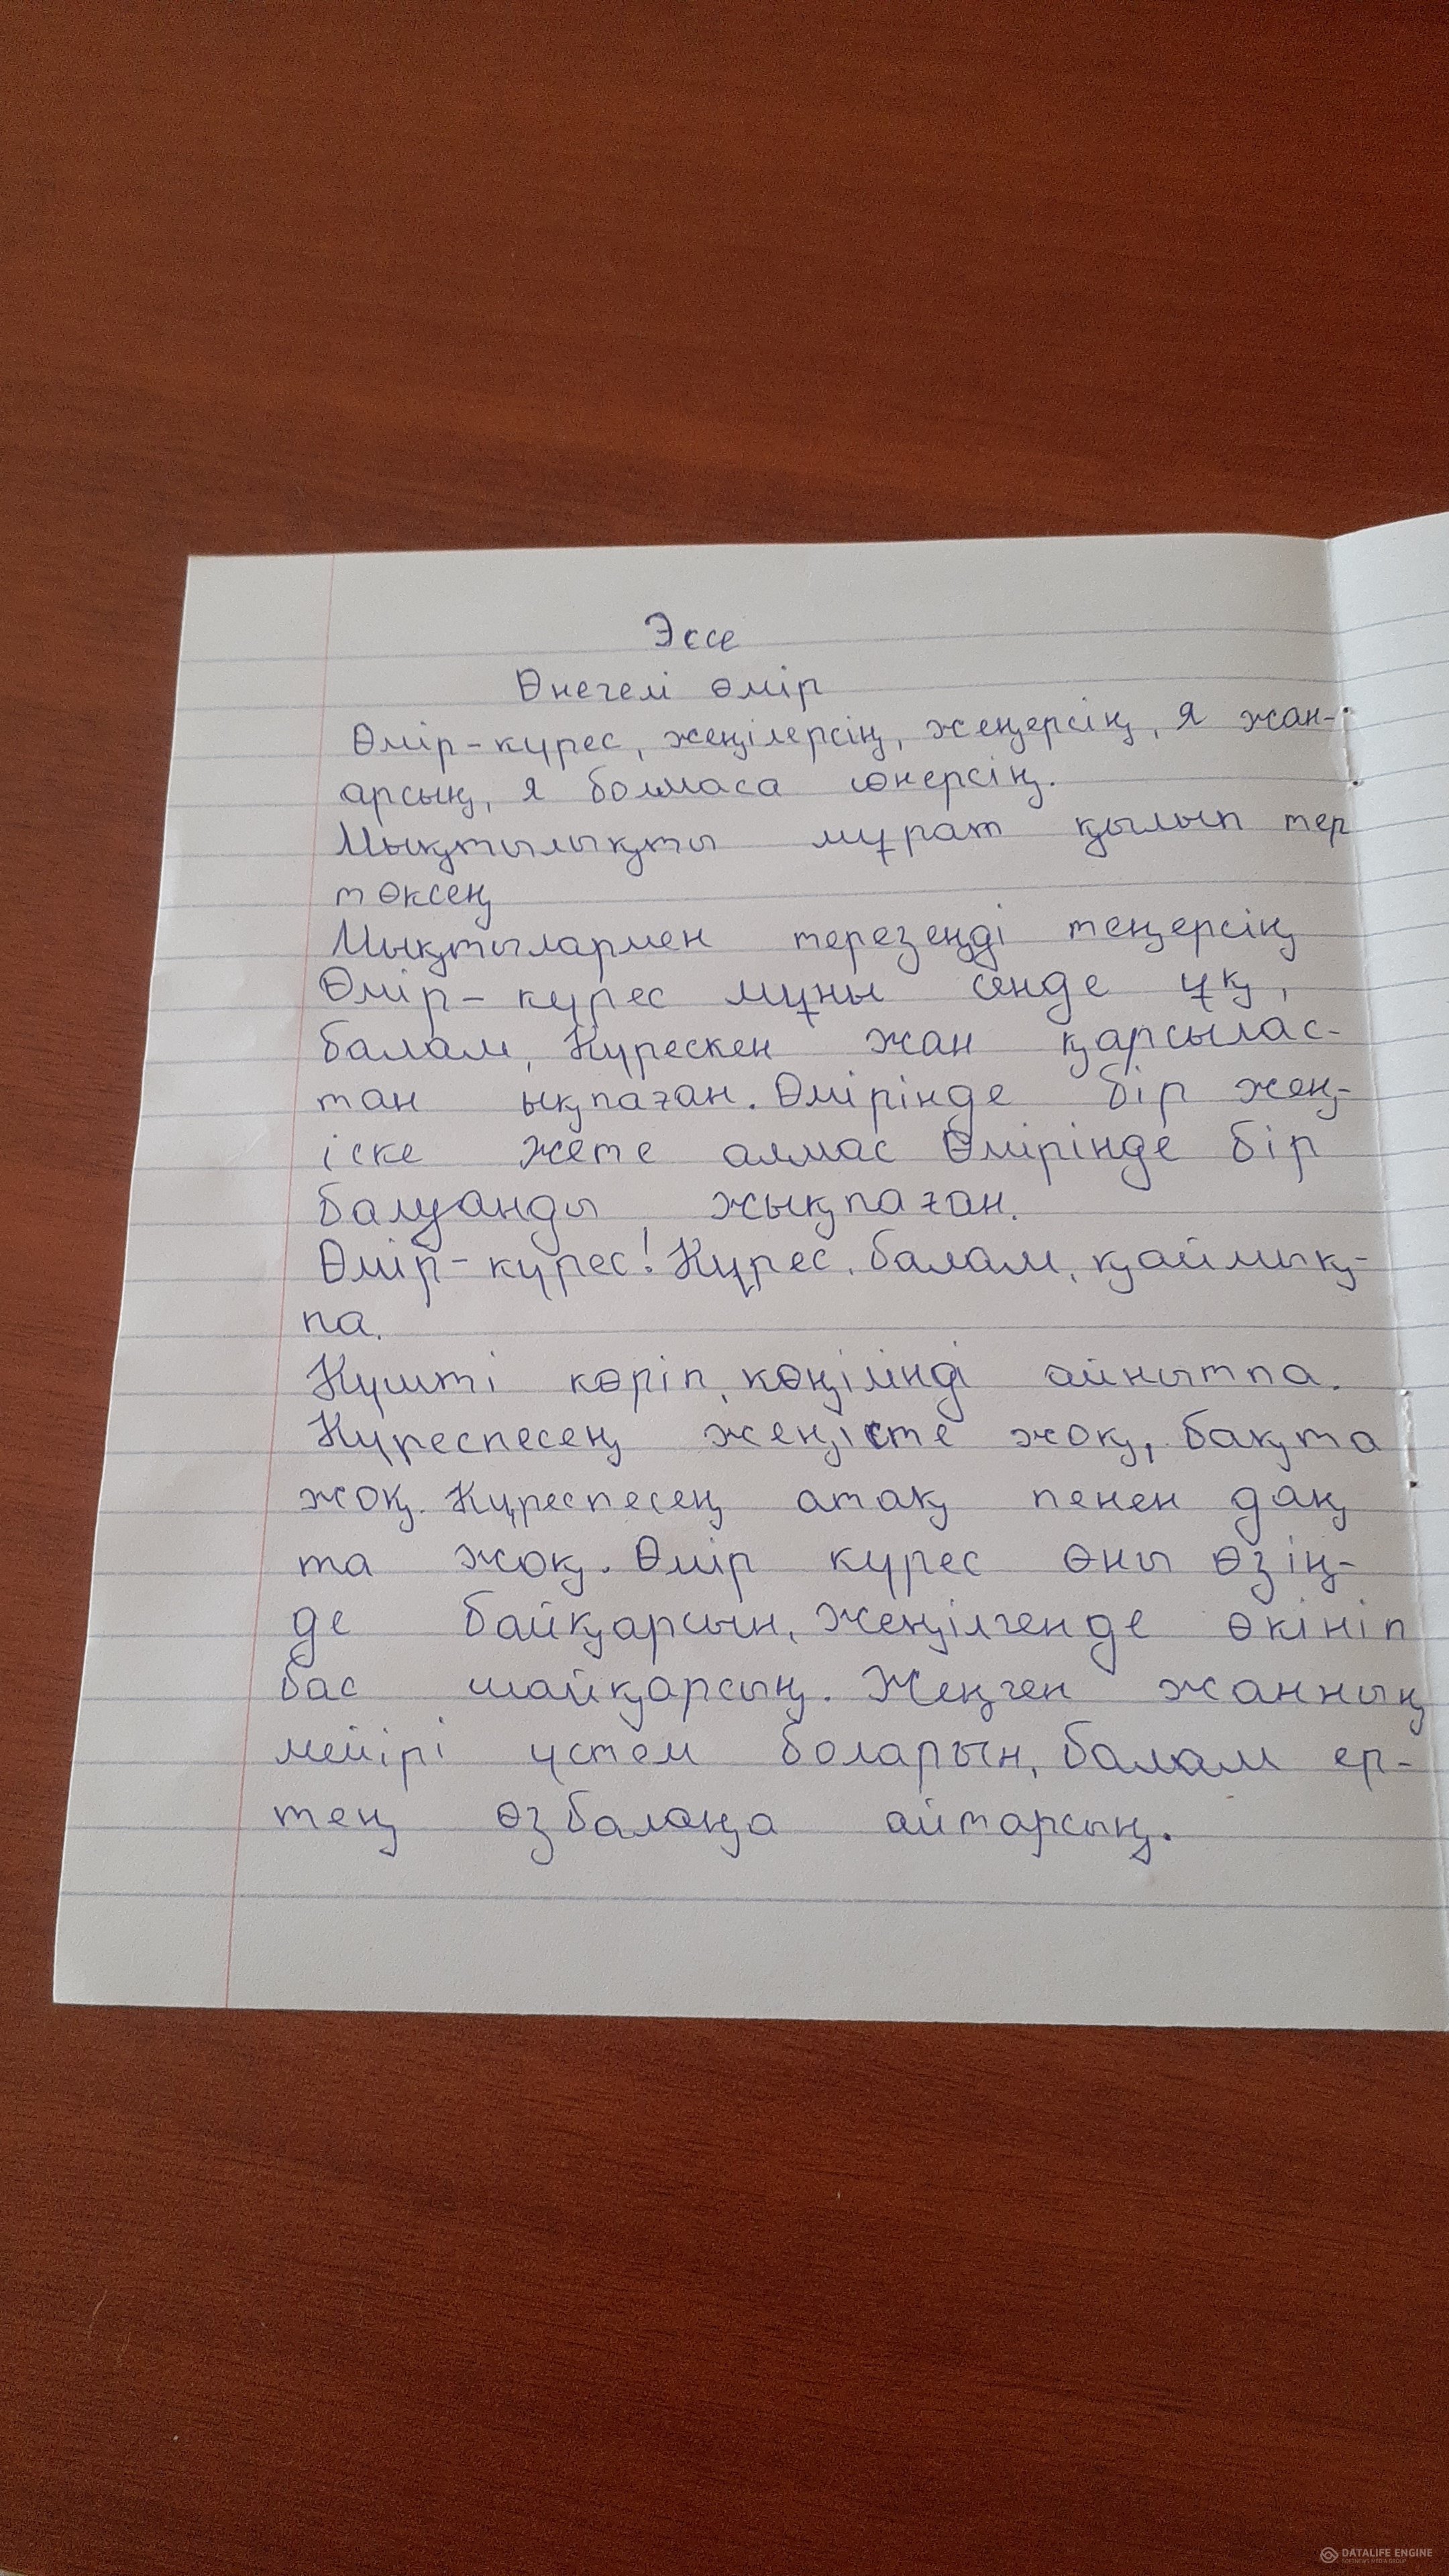 Эссе
Өнегелі өмір
Өмір-күрес, жеңілерсің, жеңерсің, я жан-
арсың, я болмаса сөнерсің.
Мықтылықты мұрат қылып тер
төксең
Мықтылармен терезеңді теңерсің
Өмір-күрес мұны сенде ұқ,
балам, Күрескен жан қарсылас-
тан ықпаған. Өмірінде бір жең-
іске жете алмас Өмірінде бір
балуанды жықпаған.
Өмір-күрес! Күрес, балам, қаймық-
па.
Күшті көріп, көңіліңді айнытпа.
Күреспесең жеңісте жоқ, бақта
жоқ. Күреспесең атақ пенен даң
та жоқ. Өмір күрес оны өзің-
де байқарсын, Жеңілгенде өкініп
бас шайқарсың. Жеңген жанның
мейірі үстем боларын, балам ер-
тең өз балаңа айтарсың.
DATALIFE ENGINE
SOFTNEWS MEDIA GROUP